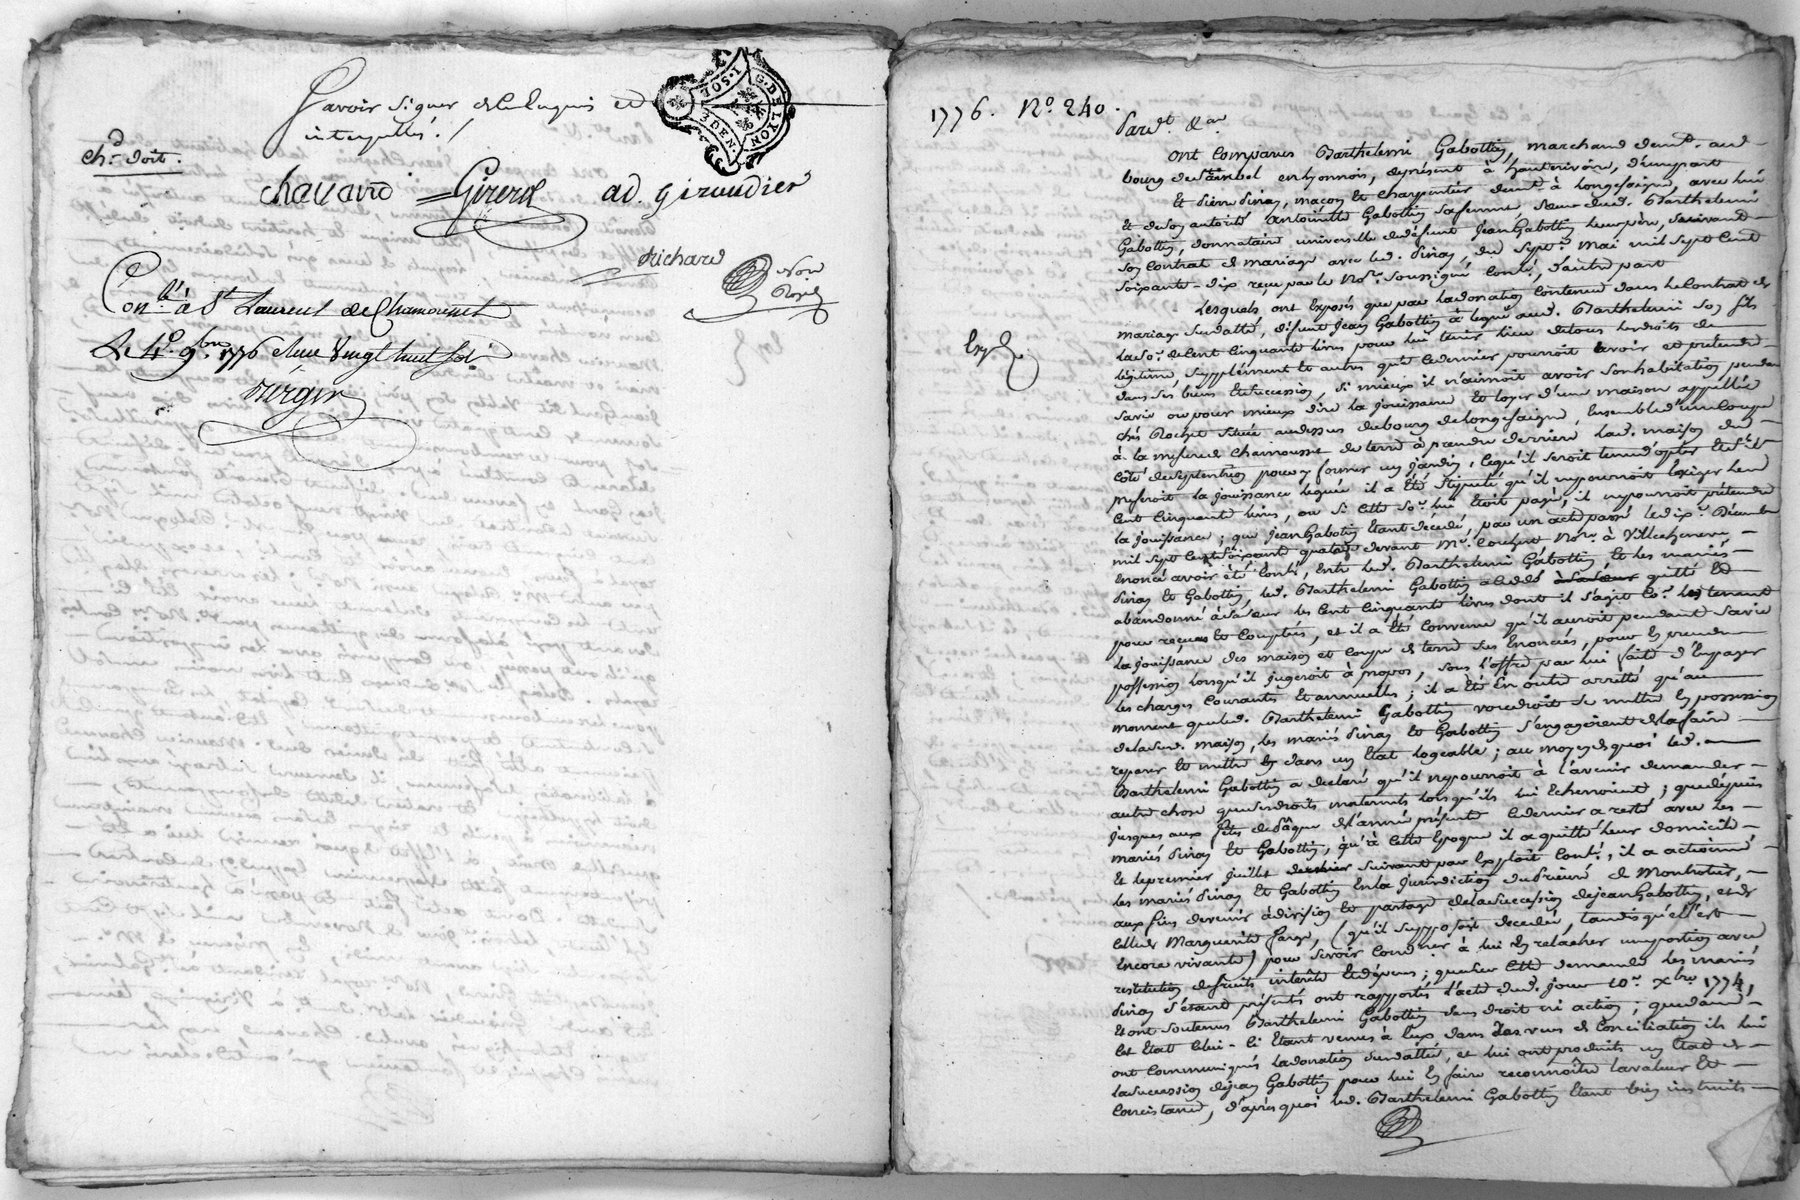 Savoir signer de ce enquis et
interpellés. /
chd. doite.
chavand Girerd ad. giraudier
Richard
Nore
Royal
G. DE LYON
1. SOL
3 DEN.
Conlé. à St Laurent de Chamousset
Le 4e. 9bre. 1776 reçu vingt huit sols
Exp.
1776. No. 240.
Pardt. &a.
ont comparus Barthelemi Gabottin, marchand demt. au d.
bourg de Sainbel en lyonnois, de présent à hauterivoire, d'une part
Et pierre Pinay, maçon et charpentier demt. à longesaigne, avec lui
et de son autorité Antoinette Gabottin sa femme, sœur dud. Barthelemi
Gabottin, donnataire universelle de défunt Jean Gabottin leur père, suivant
son contrat de mariage avec led. Pinay, du sept. mai mil sept cent
soixante-dix reçu par le nore. soussigné conlé., d'autre part
Lesquels ont exposés que par la donation contenue dans le contrat de
mariage susdatté, défunt Jean Gabottin a légué aud. Barthelemi son fils
la so. de cent cinquante livres pour lui tenir lieu de tous les droits de
légitime supplément et autres que ce dernier pourroit avoir et prétendre
dans ses biens et succession, si mieux il n'aimoit avoir son habitation pendant
sa vie ou pour mieux dire la jouissance et loyer d'une maison appellée
chés Rochet située au dessus du bourg de longesaigne, ensemble d'une coupe
à la mesure de Chamousset de terre à prendre derriere lad. maison du
côté de septentrion pour y former un jardin, ce qu'il seroit tenu d'opter et s'il
préferoit la jouissance léguée il a été stipulé qu'il ne pourroit exiger lesd.
cent cinquante livres, ou si cette so. lui étoit payée, il ne pourroit prétendre
la jouissance; que Jean Gabottin étant décédé, par un acte passé le dix. Décembre
mil sept cent soixante quatorze devant Me. Couchet nore. à Villechenève,
énoncé avoir été conlé, entre led. Barthelemi Gabottin et les mariés
Pinay et Gabottin, led. Barthelemi Gabottin a cédé à sa sœur quitté et
abandonné à sa sœur les cent cinquante livres dont il s'agit les tenant
pour reçues et comptées, et il a été convenu qu'il auroit pendant sa vie
la jouissance des maison et coupe de terre sus énoncées, pour en prendre
possession lorsqu'il jugeroit à propos, sous l'offre par lui faite d'en payer
les charges courantes et annuelles; il a été en outre arrêté qu'au
moment que led. Barthelemi Gabottin voudroit se mettre en possession
de la sud. maison, les mariés Pinay et Gabottin s'engageroient de la faire
reparer et mettre en dans un état logeable; au moyen de quoi led.
Barthelemi Gabottin a declaré qu'il ne pourroit à l'avenir demander
autre chose que ses droits maternels lorsqu'ils lui echerroient; que depuis
jusques aux fêtes de pâque de l'année présente ce dernier a resté avec les
mariés Pinay et Gabottin, qu'à cette époque il a quitté leur domicile
et le premier juillet dernier suivant par exploit conlé., il a actionné
les mariés Pinay et Gabottin en la jurisdiction du Prieuré de Montrotier,
aux fins de venir à division et partage de la succession de jean Gabottin, et de
celle de Marguerite Farge, (qu'il supposoit decedée, tandis qu'elle est
encore vivante) pour se voir condner. à lui en relacher une portion avec
restitution de fruits intérêts et dépens; que sur cette demande les mariés
Pinay s'étant présentés ont rapportés l'acte dud. jour 10e. xbre 1774,
et ont soutenus Barthelemi Gabottin sans droit ni action; que dans
cet état celui-ci étant venus à eux dans des vues de conciliation ils lui
ont communiqués la donation susdattée, et lui ont produits un état de
la succession de jean Gabottin pour lui en faire reconnoître la valeur et
consistance, d'après quoi led. Barthelemi Gabottin étant bien instruits